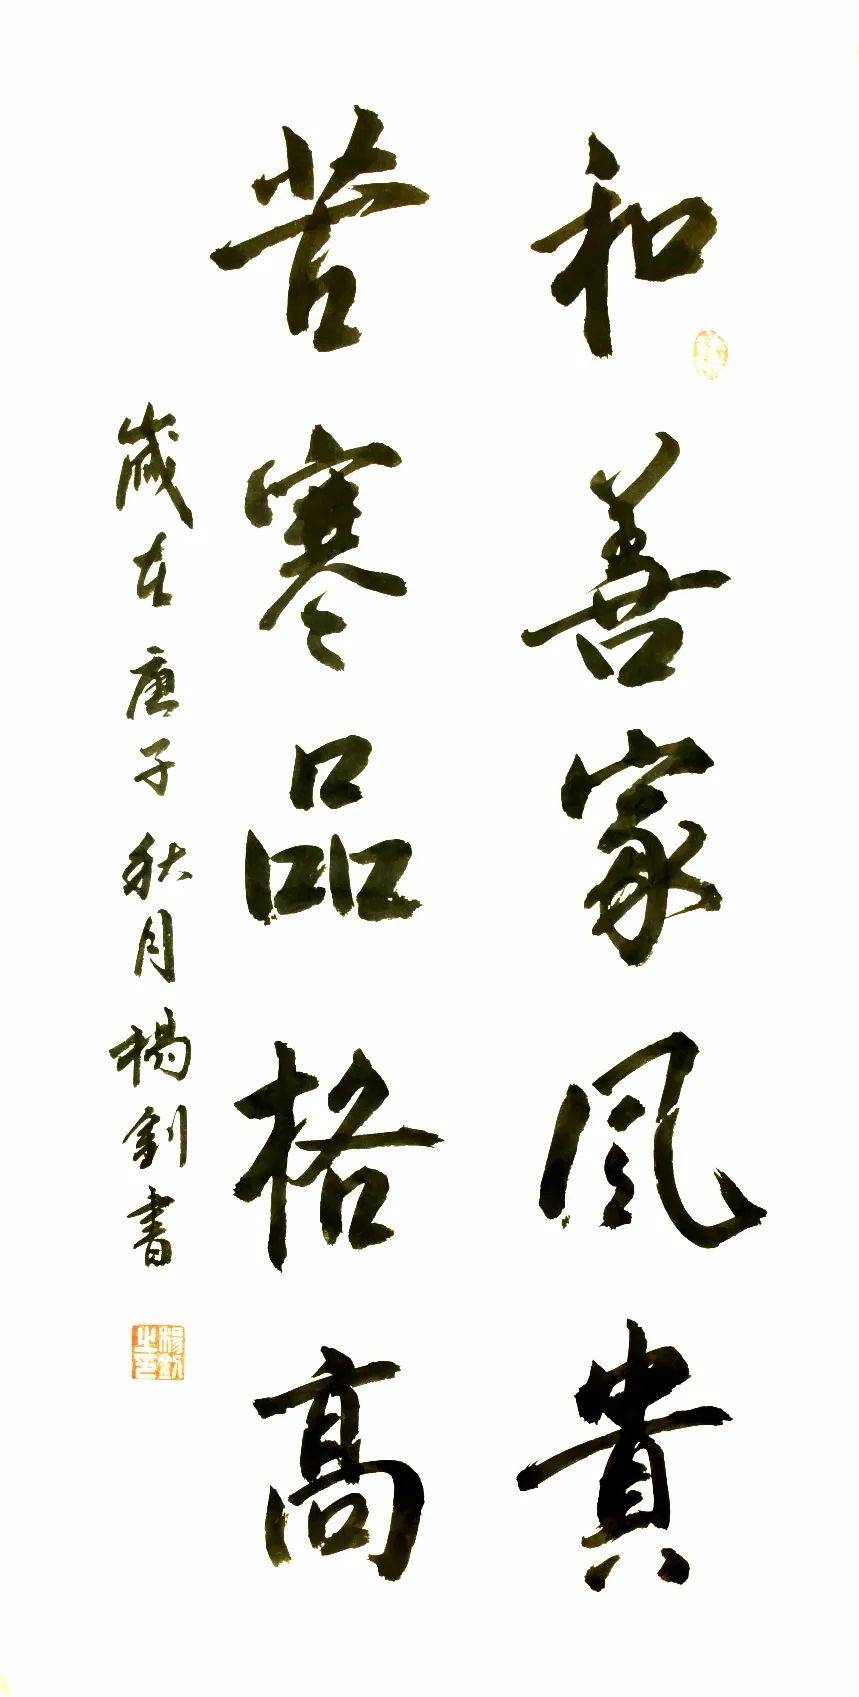 和善家風貴
苦寒品格高
歲在庚子秋月楊釗書